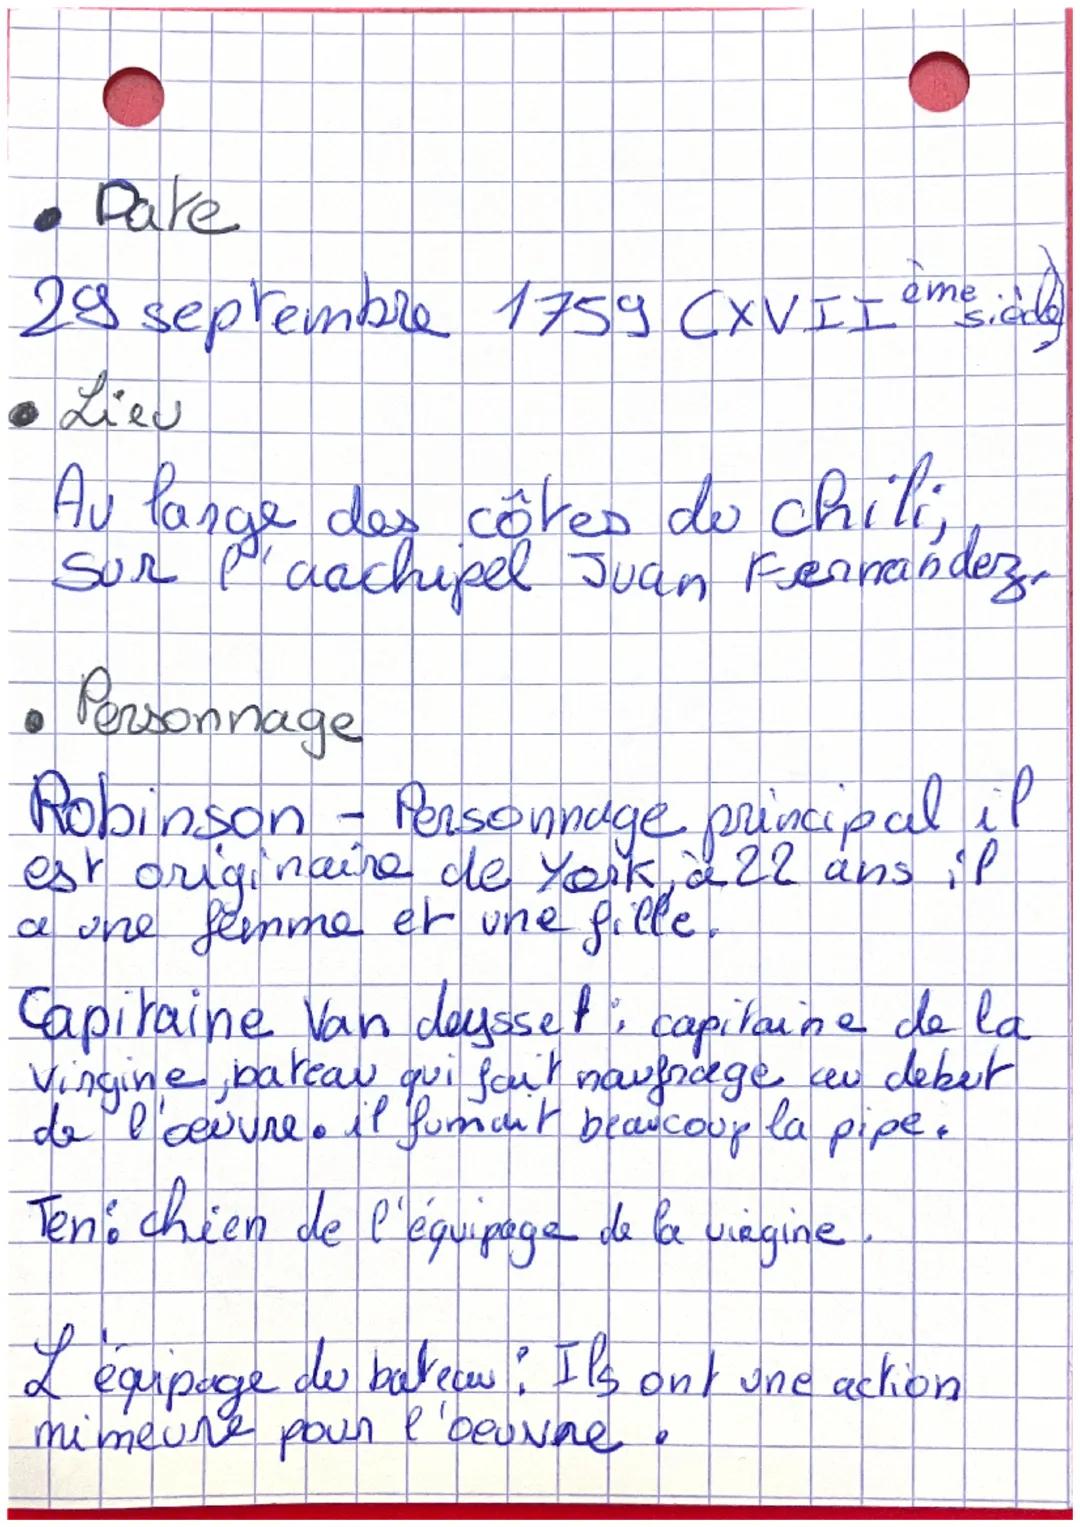 • Date
29 septembre 1759 (XVIIème siècle)
• Lieu
Au large des côtes du chili,
sur l'archipel Juan Fernandez.
• Personnage
Robinson - Personnage principal il
est originaire de York, à 22 ans il
a une femme et une fille.
Capitaine Van deysset : capitaine de la
virgine, bateau qui fait naufrage au debut
de l'œuvre. il fumait beaucoup la pipe.
Ten : chien de l'équipage de la virgine.
L'équipage du bateau : Ils ont une action
mimeure pour l'oeuvre.